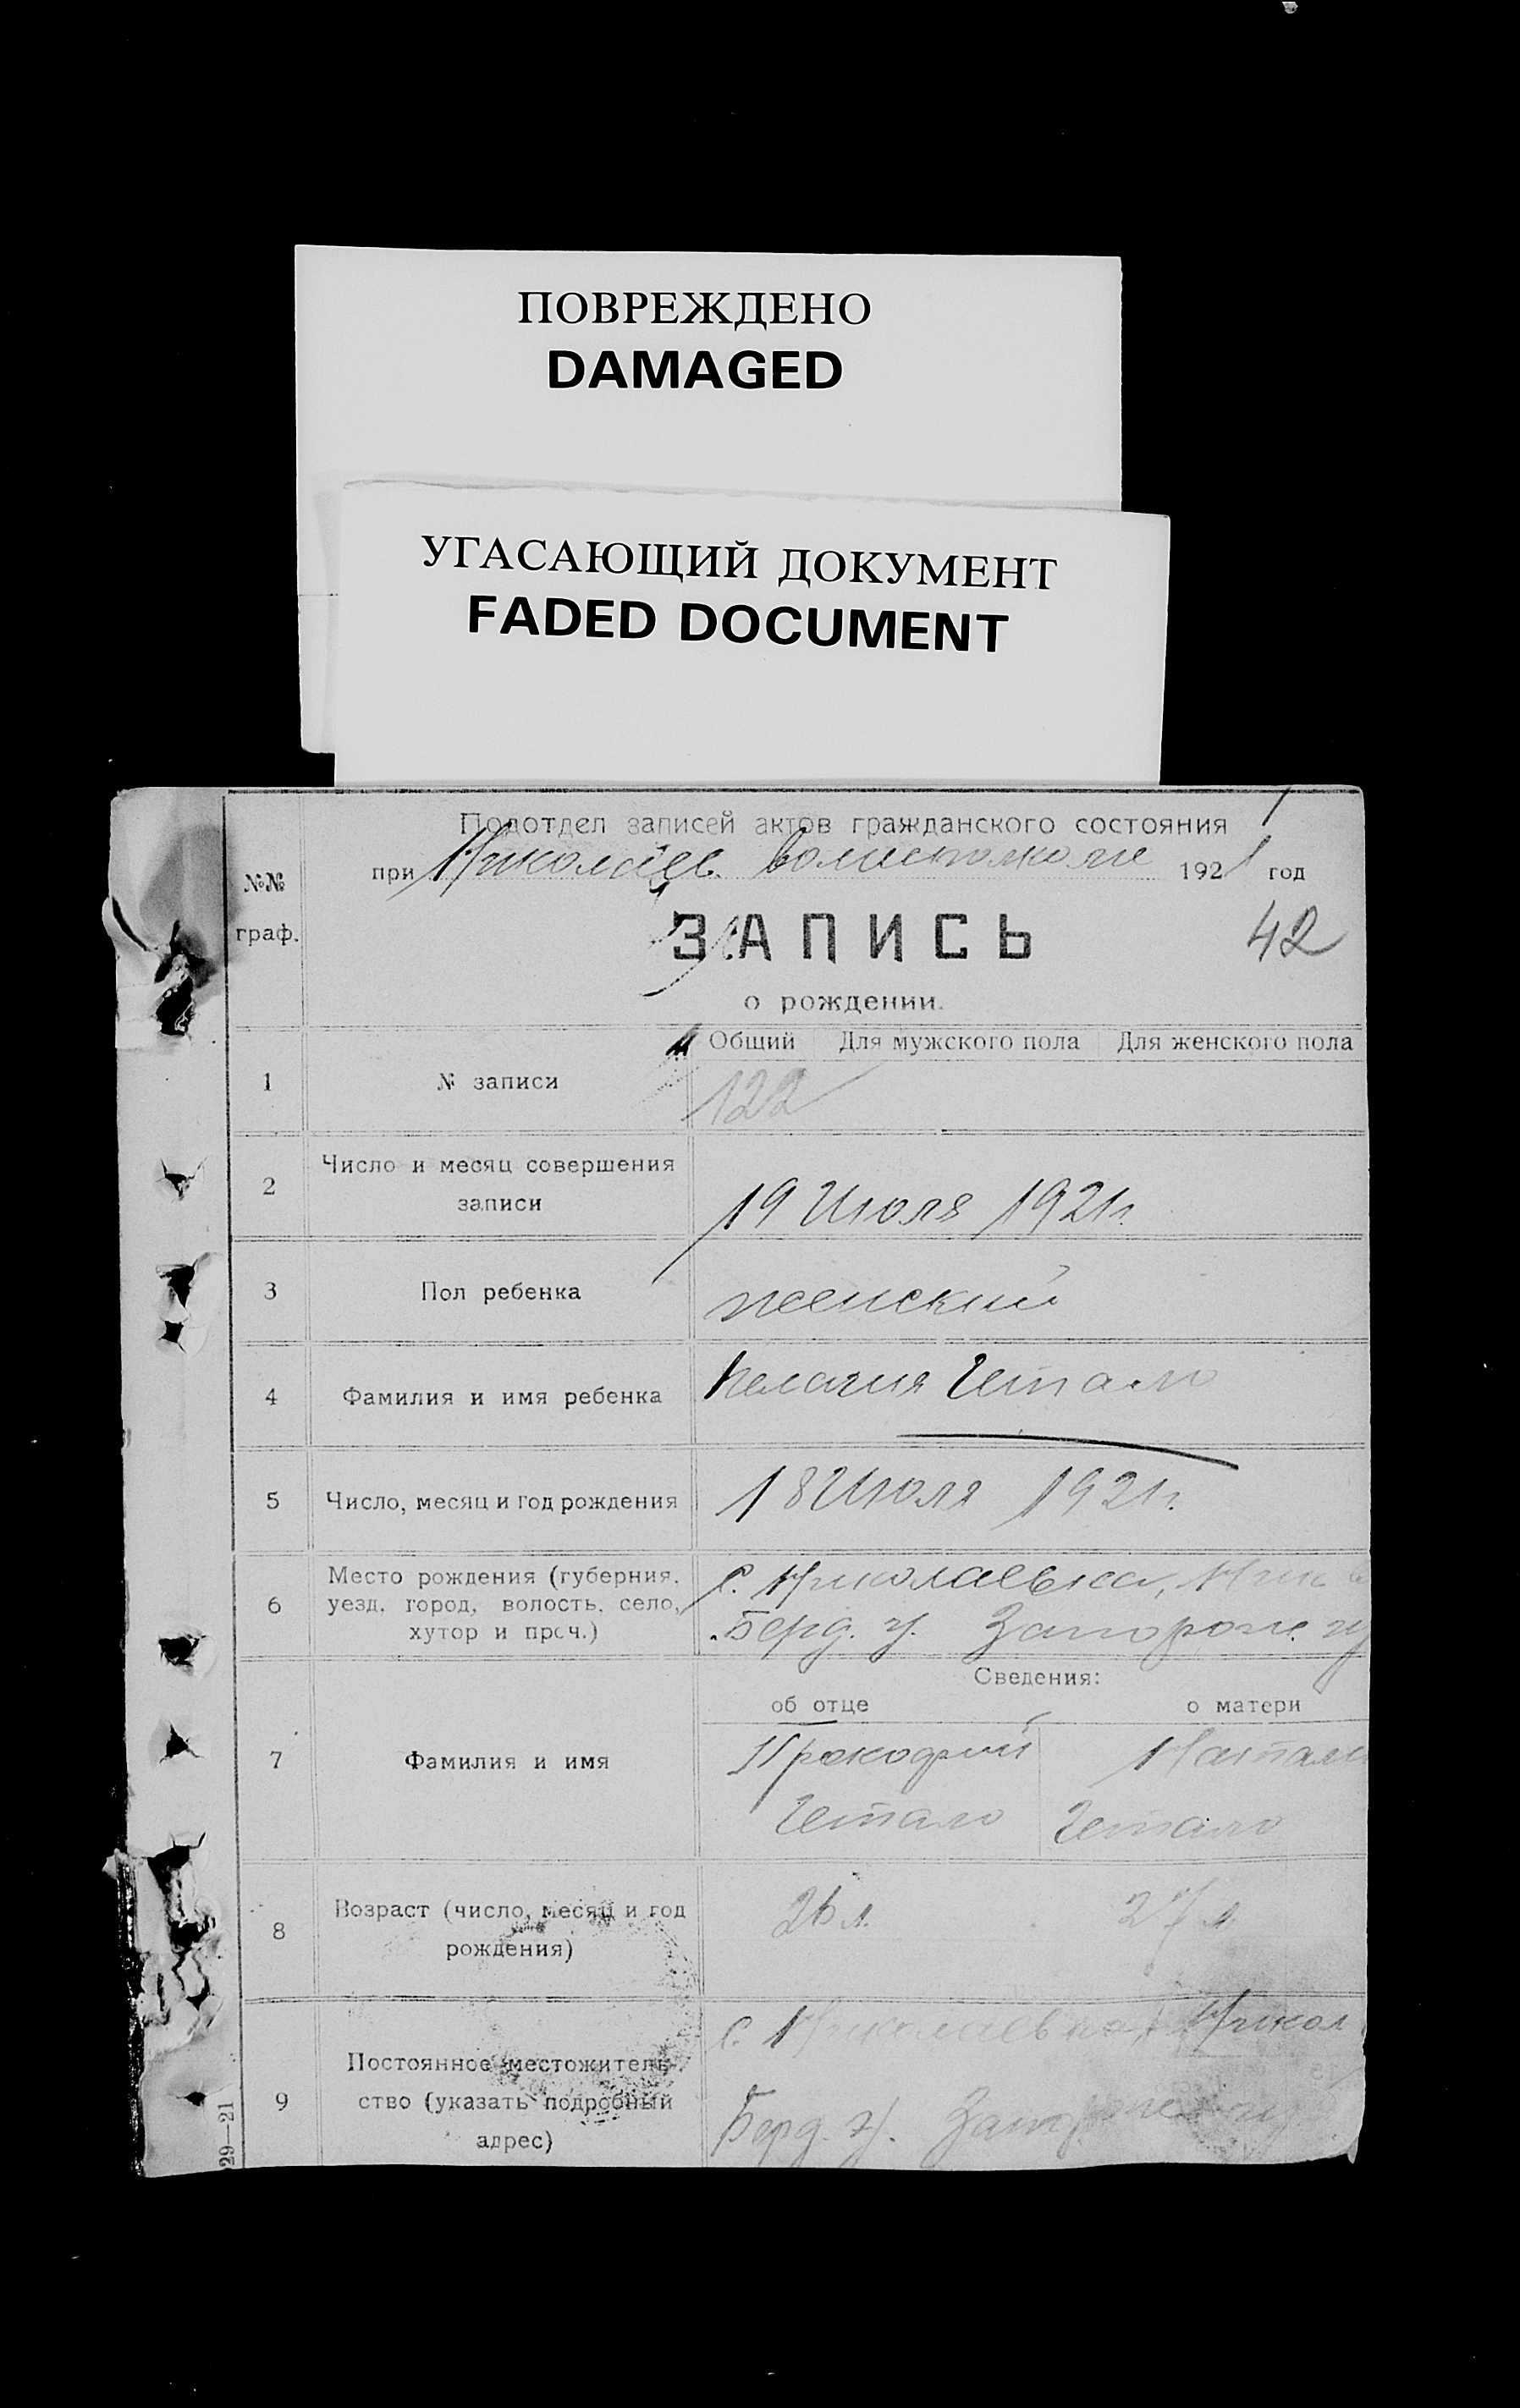 ПОВРЕЖДЕНО
DAMAGED
УГАСАЮЩИЙ ДОКУМЕНТ
FADED DOCUMENT
Подотдел записей актов гражданского состояния
при Николаев. волисполкоме 1921 год
№№
граф.
ЗАПИСЬ
42
о рождении.
Общий Для мужского пола Для женского пола
1 № записи 122
2 Число и месяц совершения
записи 19 Июля 1921 г.
3 Пол ребенка женский
4 Фамилия и имя ребенка Пелагия Гетало
5 Число, месяц и год рождения 18 Июля 1921 г.
Место рождения (губерния, с. Николаевка, Ник
6 уезд, город, волость, село,
хутор и проч.) Берд. у. Запорож. гу
Сведения:
об отце о матери
7 Фамилия и имя Прокофий Натали
Гетало Гетало
8 Возраст (число, месяц и год 26 л. 27 л
рождения)
с. Николаевка, Никол
Постоянное местожитель-
9 ство (указать подробный
адрес) Берд. у. Запорож. гу
29—21